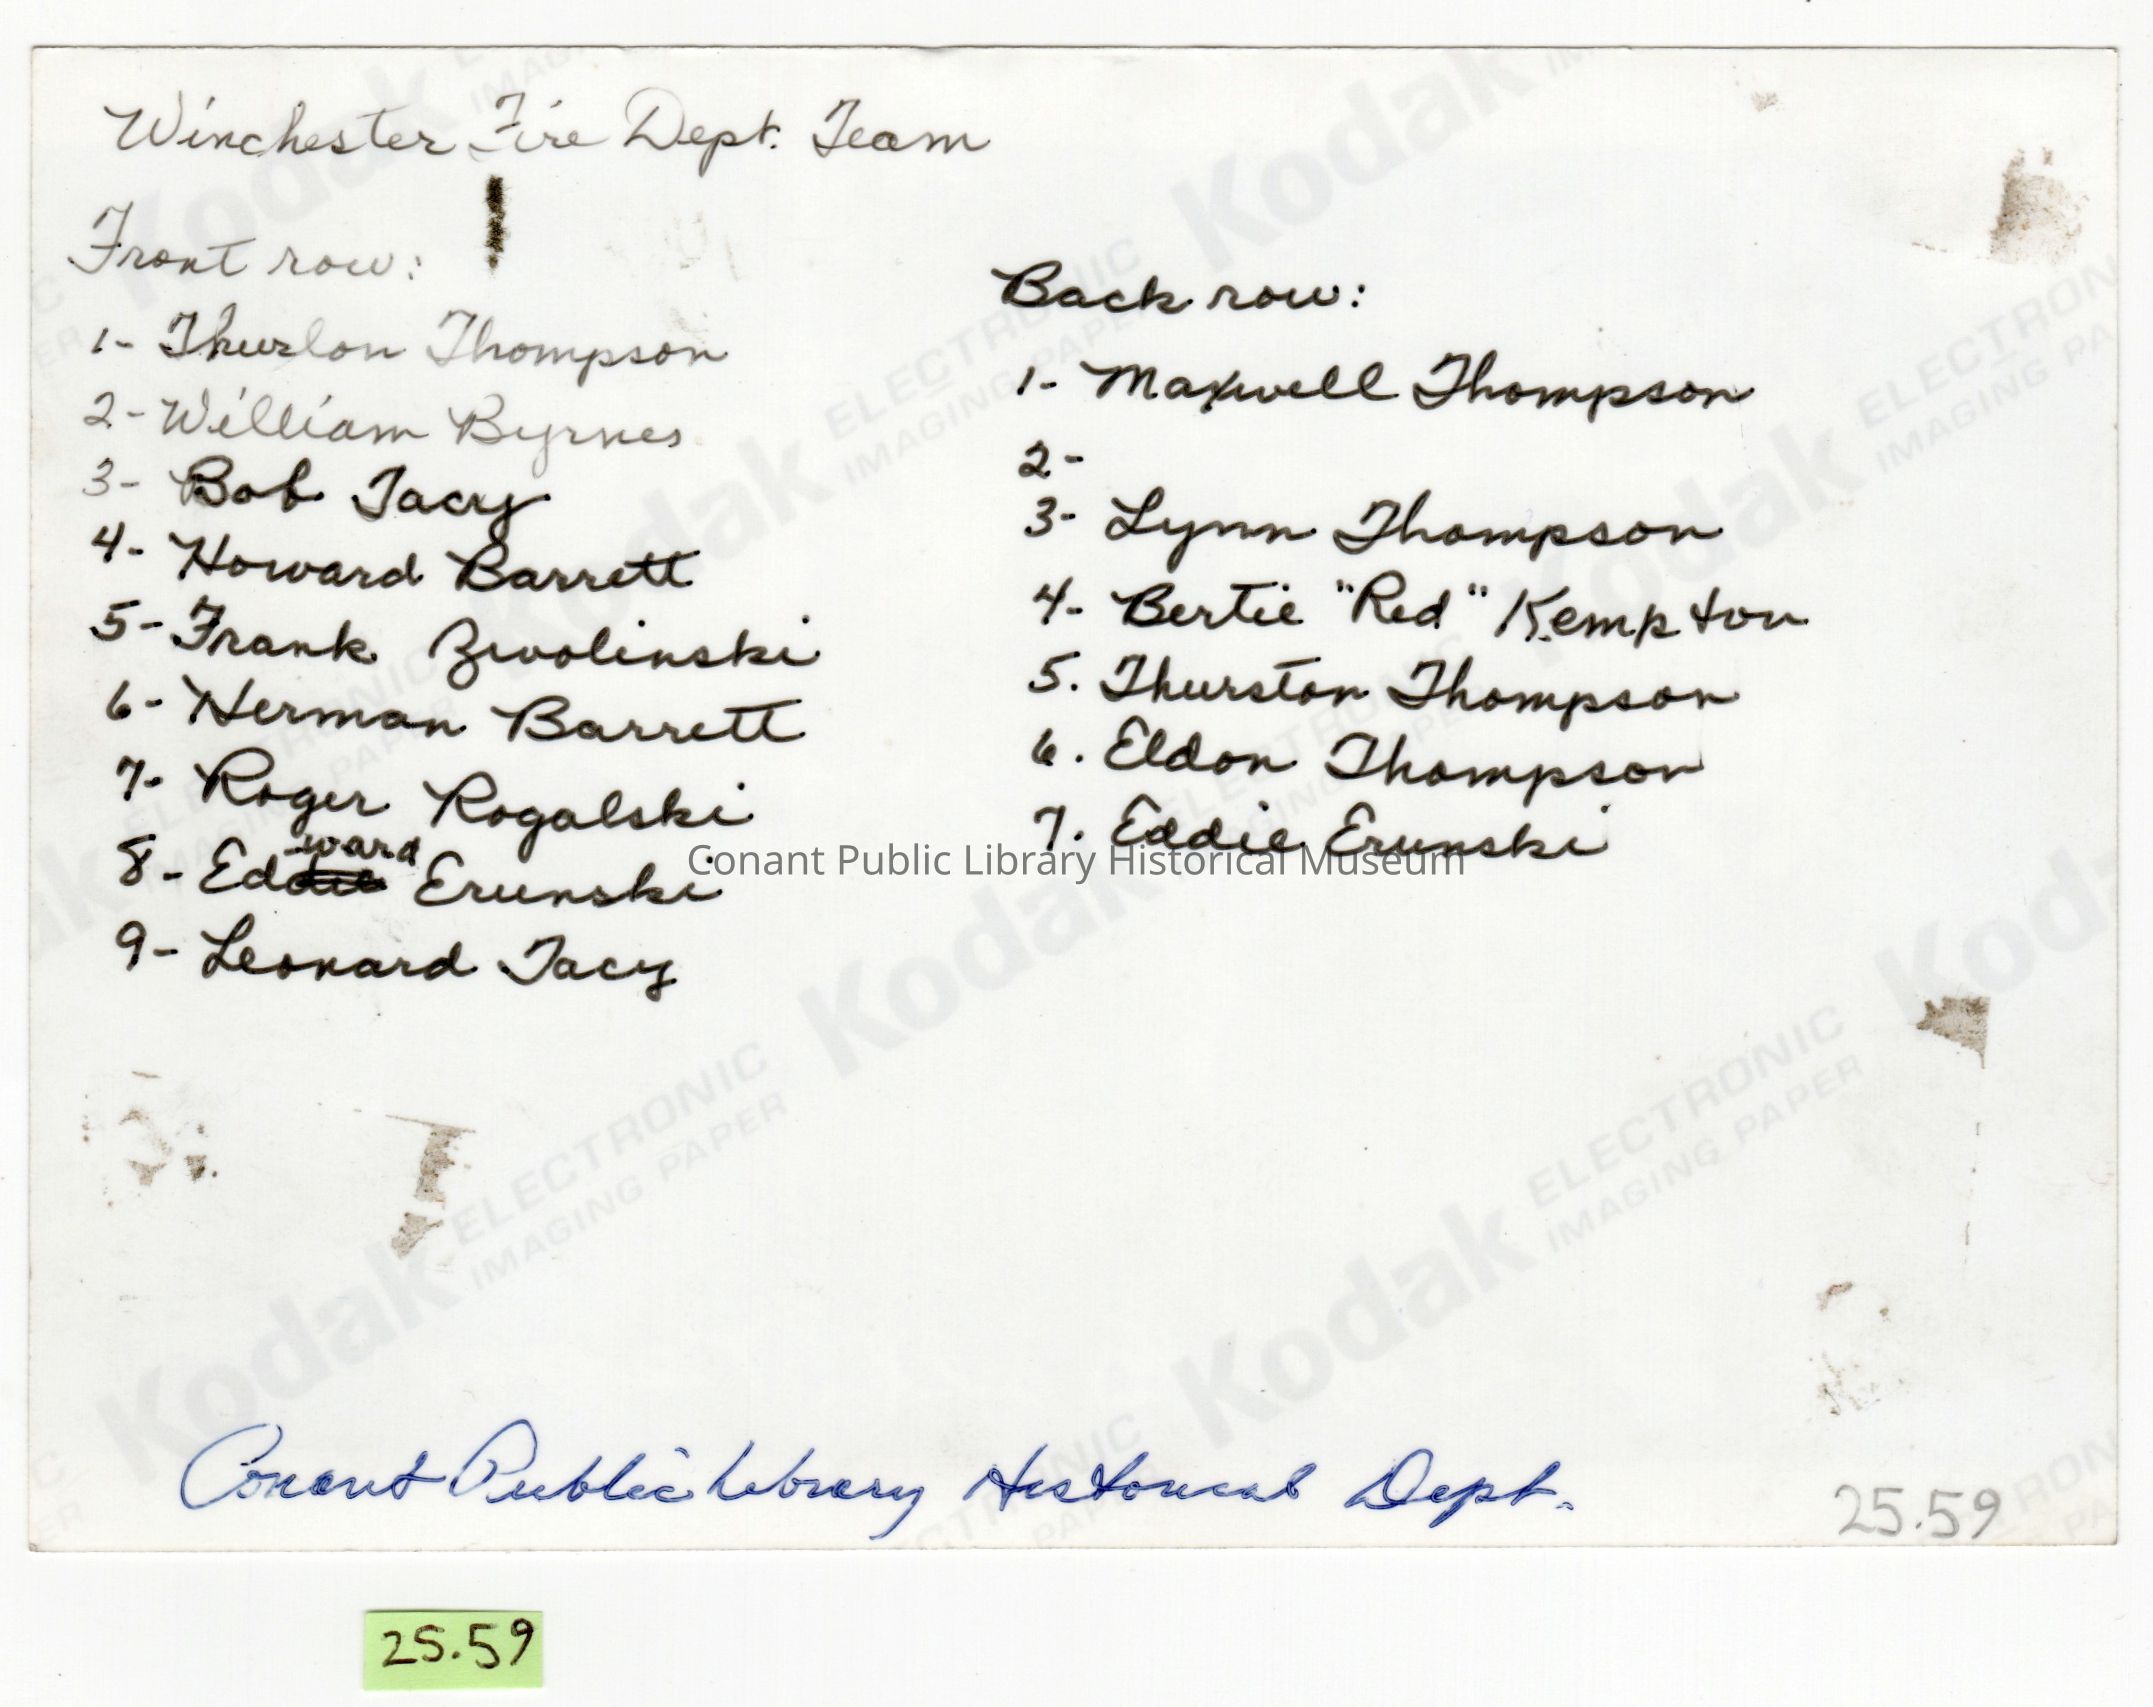 Winchester Fire Dept. Team
Front row:
1- Thurlon Thompson
2- William Byrnes
3- Bob Tacy
4- Howard Barrett
5- Frank Zwolinski
6- Herman Barrett
7- Roger Rogalski
8- Edward Erunski
9- Leonard Tacy
Back row:
1- Maxwell Thompson
2-
3- Lynn Thompson
4- Bertie "Red" Kempton
5. Thurston Thompson
6. Eldon Thompson
7. Eddie Erunski
Conant Public Library Historical Museum
Conant Public Library Historical Dept.
25.59
25.59
Kodak
ELECTRONIC
IMAGING PAPER